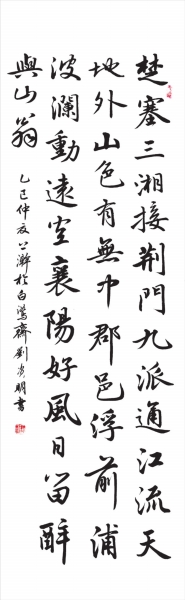 楚塞三湘接荊門九派通江流天
地外山色有無中郡邑浮前浦
波瀾動遠空襄陽好風日留醉
與山翁 乙巳仲夏上澣於白鷺齋劉明書